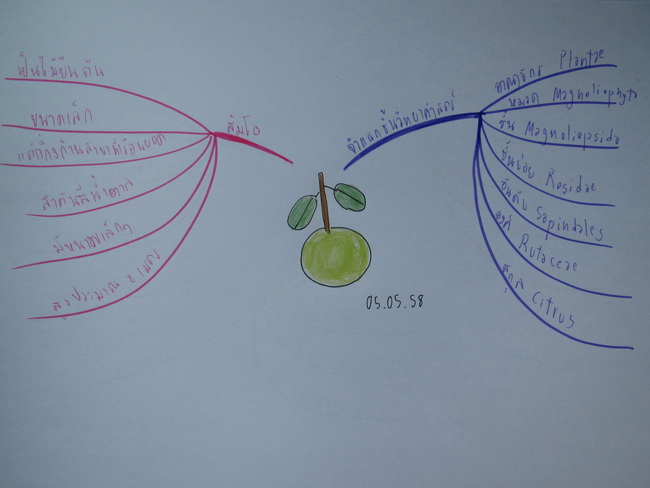 ส้มโอ
เป็นไม้ยืนต้น
ขนาดเล็ก
แตกกิ่งก้านสาขาที่เรือนยอด
ลำต้นสีน้ำตาล
มีหนามเล็กๆ
สูงประมาณ 8 เมตร
จำแนกชั้นวิทยาศาสตร์
อาณาจักร Plantae
หมวด Magnoliophyta
ชั้น Magnoliopsida
ชั้นย่อย Rosidae
อันดับ Sapindales
วงศ์ Rutaceae
สกุล Citrus
05.05.58